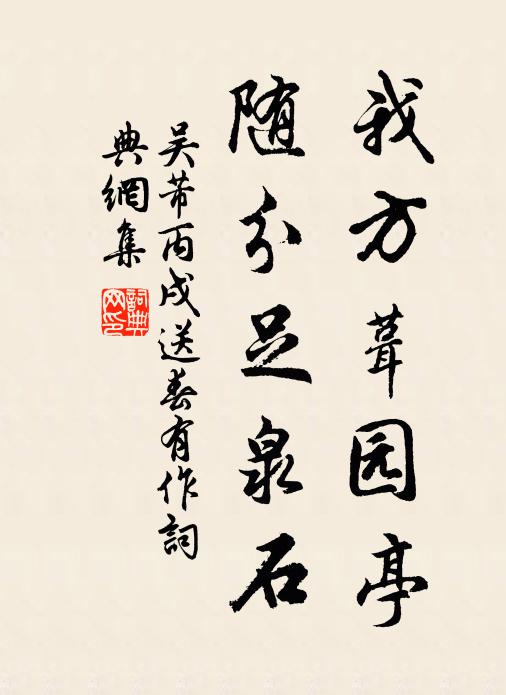 我方葺园亭
随分足泉石
吴芾丙戌送春有作詞
典網集
詞典网印